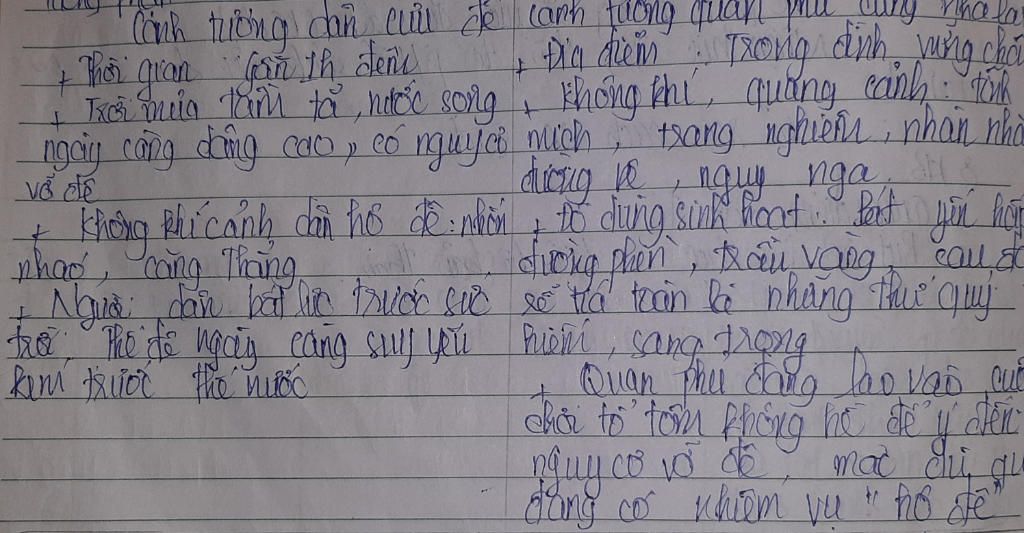 Cảnh tượng dân cứu đê
+ Thời gian gần 1h đêm
+ Trời mưa tầm tã, nước sông
ngày càng dâng cao, có nguy cơ
vỡ đê
+ Không khí cảnh dân hộ đê: nhốn
nhao, căng thẳng
+ Người dân bất lực trước sức
trời, Thế đê ngày càng suy yếu
kém trước thế nước
cảnh tượng quan phủ cùng nha lại
+ Địa điểm : Trong đình vững chãi
+ Không khí, quang cảnh : tĩnh
mịch, trang nghiêm, nhàn nhã
đường vệ, nguy nga.
+ đồ dùng sinh hoạt : Bát yến
đường phèn, trầu vàng, cau
rễ tía toàn là những thứ quý
hiếm, sang trọng
+ Quan phủ đang lao vào
chơi tổ tôm không hề để ý đến
nguy cơ vỡ đê, mặc dù
đang có nhiệm vụ "hộ đê"